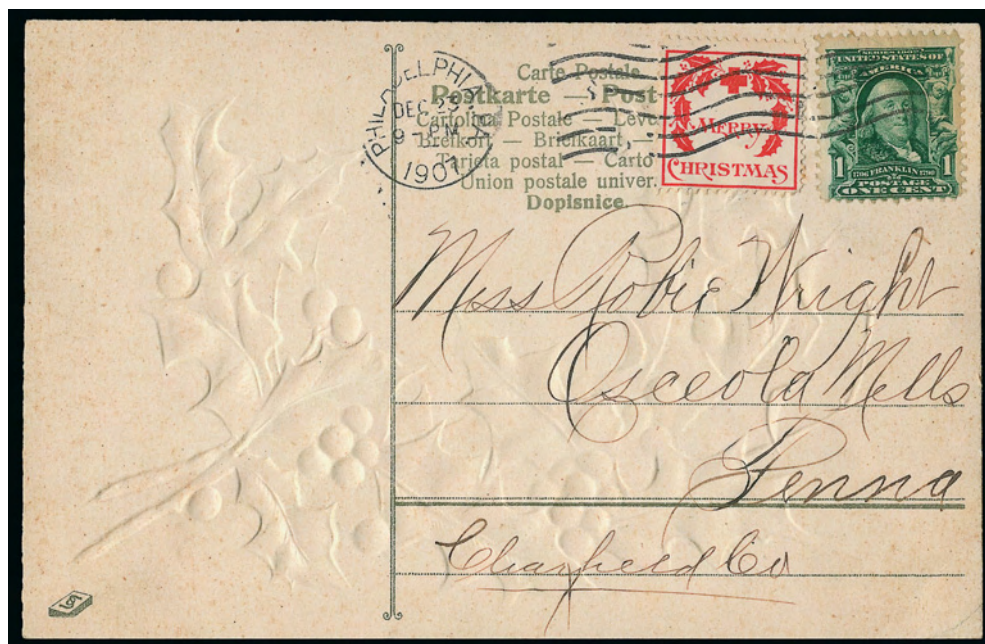 PHILADELPHIA, PA.
DEC 23
9 - PM
1907
Carte Postale.
Postkarte — Post
Cartolina Postale — Leve
Brefkort — Briefkaart,
Tarjeta postal — Carto
Union postale univer.
Dopisnice.
MERRY
CHRISTMAS
SERIES 1902
UNITED STATES OF
AMERICA
1 1706 FRANKLIN 1790 1
POSTAGE
ONE CENT
Miss Robie Wright
Osceola Mills
Penna
Clearfield Co